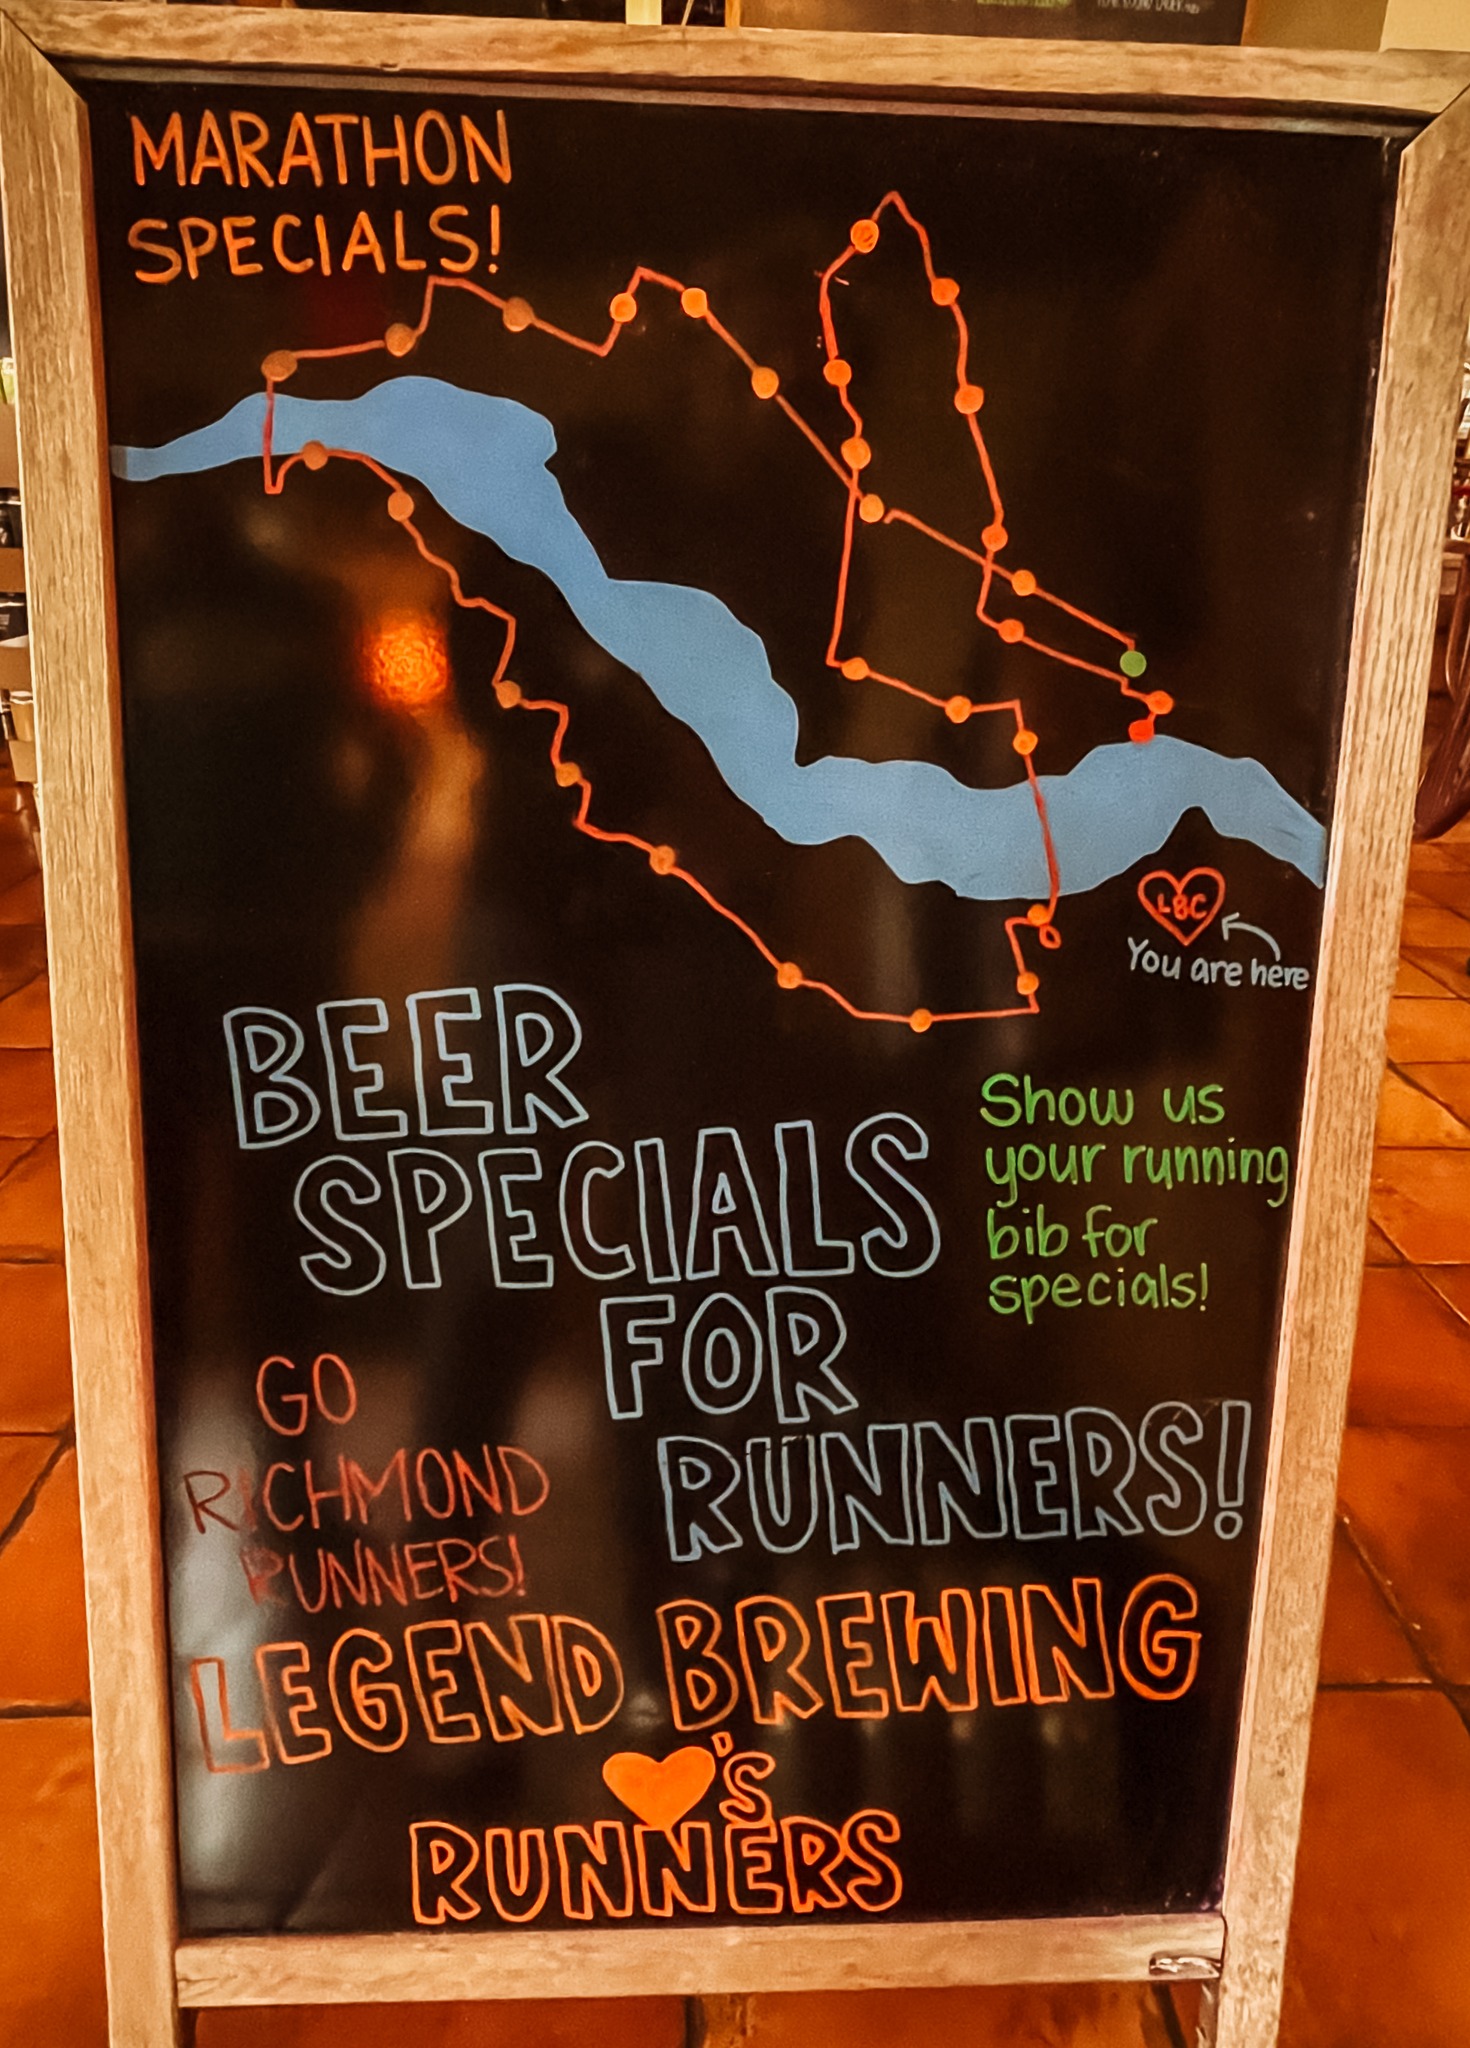 MARATHON
SPECIALS!
LBC
You are here
BEER
SPECIALS
FOR
RUNNERS!
Show us
your running
bib for
specials!
GO
RICHMOND
RUNNERS!
LEGEND BREWING
'S
RUNNERS